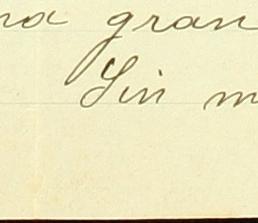 na gran
Sin m